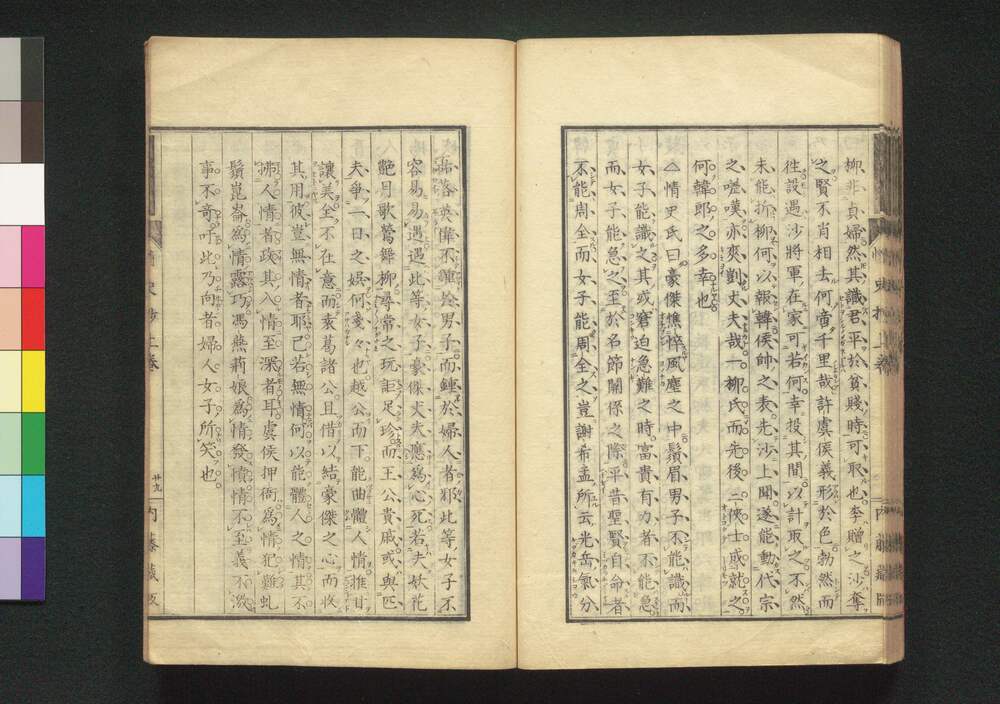 柳非貞婦然其識君平於貧賤時可取也李贈之沙奪
之賢不肖相去何啻千里哉許虞侯義形於色勃然而
往設遇沙將軍在家可若何幸投其間以計取之不然
未能折柳何以報韓侯帥之表先沙上聞遂能動代宗
之嗟嘆亦爽剴丈夫哉一柳氏而先後二俠士感就之
何韓郎之多幸也
△情史氏曰豪傑憔悴風塵之中鬚眉男子不能識而
女子能識之其或窘迫急難之時富貴有力者不能急
而女子能急之至於名節關係之際平昔聖賢自命者
不能周全而女子能周全之豈謝希孟所云光岳氣分
磊落英偉不鍾於男子而鍾於婦人者耶此等女子不
容易易遇遇此等女子豪傑丈夫應為心死若夫妖花
艷月歌鶯舞柳尋常之玩詎足珍而王公貴戚或與匹
夫爭一日之娯何戔々也越公而下能曲體人情推甘
讓美全不在意而袁葛諸公且借以結豪傑之心而收
其用彼豈無情者耶己若無情何以能體人之情其不
拂人情者政其入情至深者耳虞侯押衙為情犯難虬
鬚崑崙為情露巧馮燕荊娘為情發憤情不至義不激
事不奇吁此乃向者婦人女子所笑也
情史抄上卷
廿九